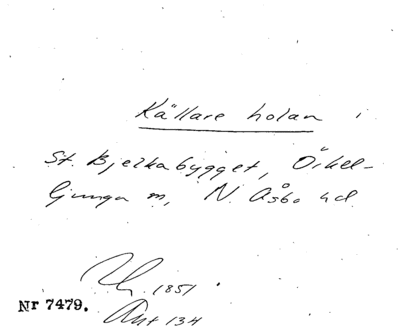 Källare holan i
St. Bjelkabygget, Örkel-
ljunga m, N. Åsbo hd
1851
Nr 7479.
Ant 134